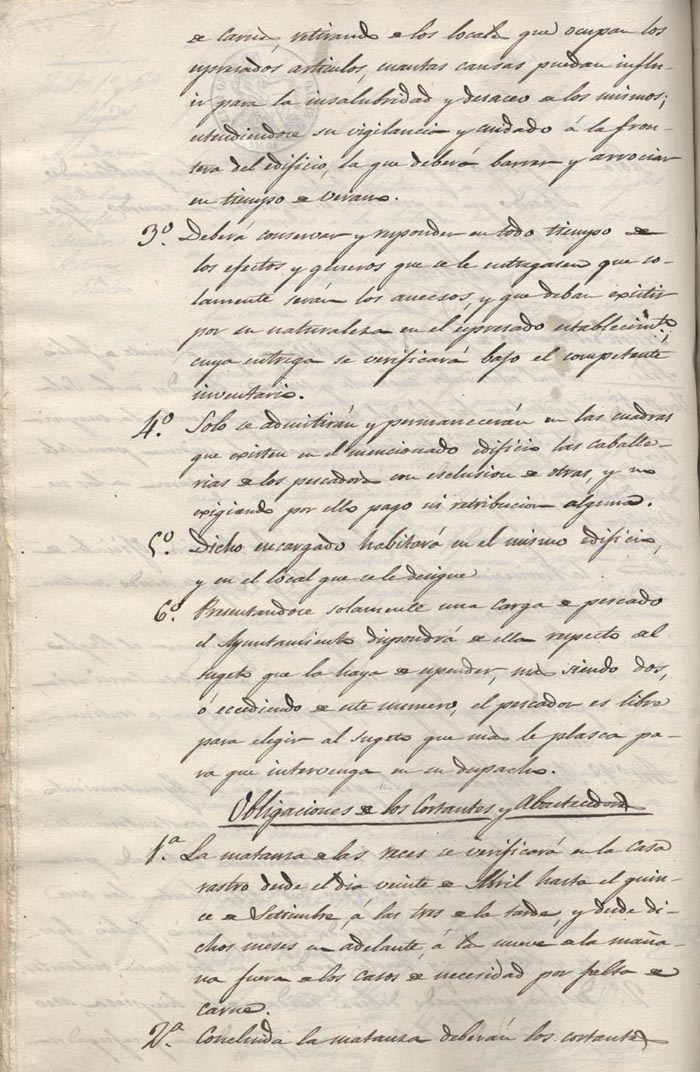 de carne, retirando de los locales que ocupan los
espresados articulos, cuantas causas puedan influ-
ir para la insalubridad y desaceo de los mismos;
entendiendose su vigilancia y cuidado á la fron-
tera del edificio, la que deberá barrer y arrociar
en tiempo de verano.
3º. Deberá conservar y responder en todo tiempo de
los efectos y generos que se le entregasen que so-
lamente serán los anecsos, y que deban existir
por su naturaleza en el espresado establecimto.;
cuya entrega se verificará bajo el competente
inventario.
4º. Solo se admitirán y permanecerán en las cuadras
que existen en el mencionado edificio las caballe-
rias de los pescadores con esclusion de otras, y no
exigiendo por ello pago ni retribucion alguna.
5º. Dicho encargado habitará en el mismo edificio,
y en el local que se le designe
6º. Presentandose solamente una carga de pescado
el Ayuntamiento dispondrá de ella respecto al
sugeto que la haya de espender, mas siendo dos,
ó ecsediendo de este numero, el pescador es libre
para elegir al sugeto que mas le plasca pa-
ra que intervenga en su despacho.
Obligaciones de los Cortantes y Abastecedores
1.ª La matanza de las reces se verificará en la casa
rastro desde el dia veinte de Abril hasta el quin-
ce de Setiembre, á las tres de la tarde, y desde di-
chos meses en adelante, á la nueve de la maña-
na fuera de los casos de necesidad por falta de
carne.
2.ª Concluida la matanza deberán los cortantes